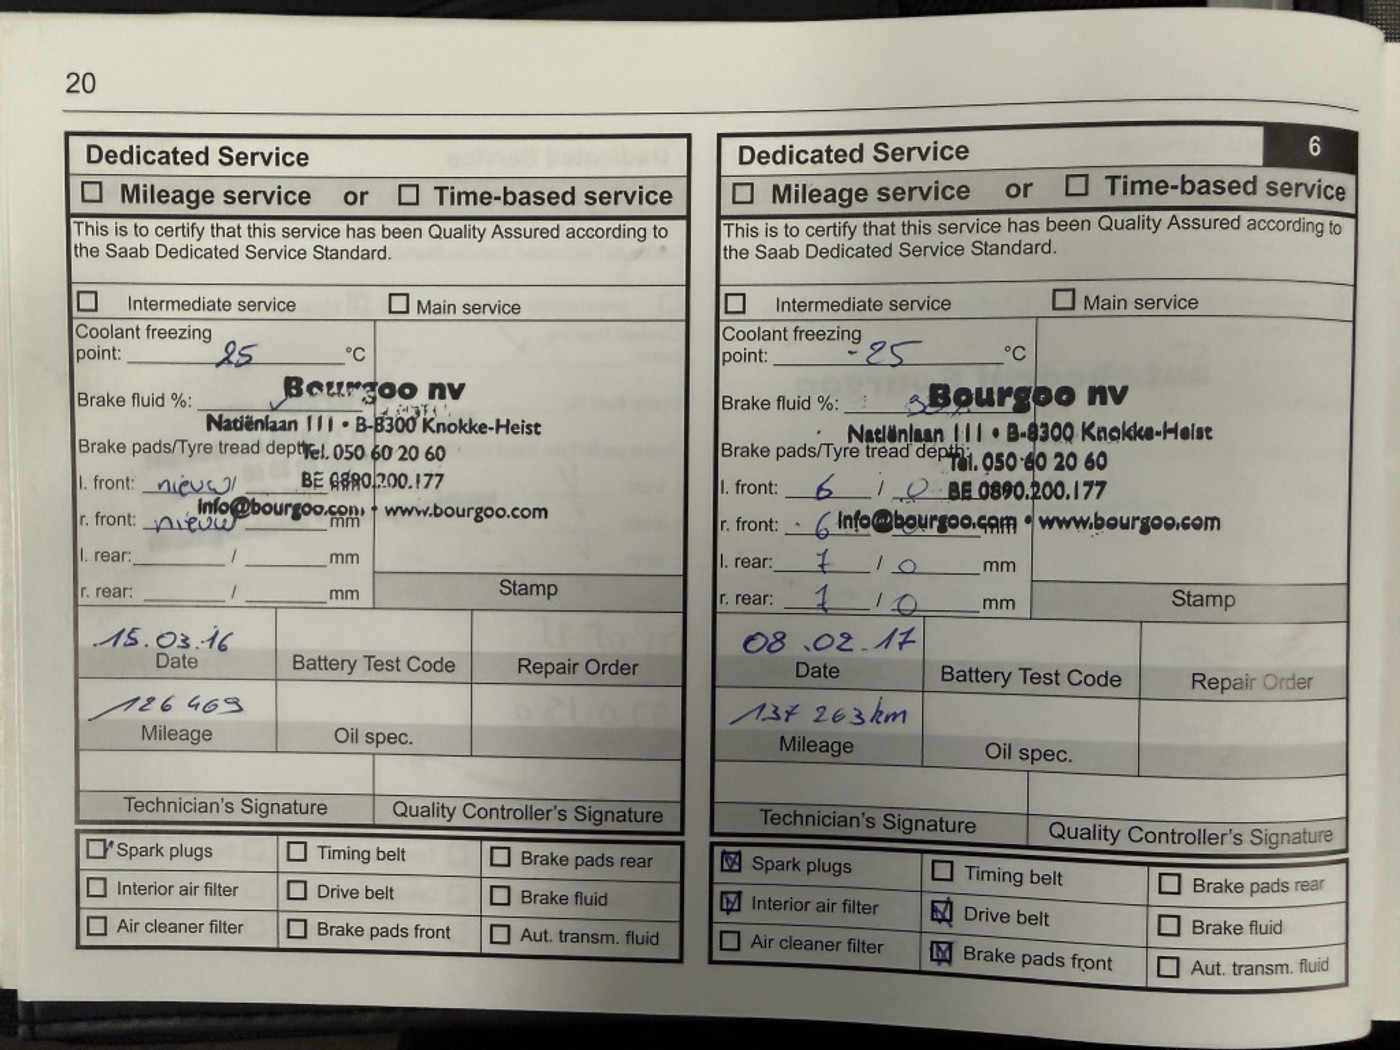 20
Dedicated Service
☐ Mileage service or ☐ Time-based service
This is to certify that this service has been Quality Assured according to
the Saab Dedicated Service Standard.
☐ Intermediate service ☐ Main service
Coolant freezing
point: 25 °C
Brake fluid %: ✓
Bourgoo nv
Natiënlaan 111 • B-8300 Knokke-Heist
Brake pads/Tyre tread depth:
Tel. 050 60 20 60
l. front: nieuw /
BE 0890.200.177
info@bourgoo.com • www.bourgoo.com
r. front: nieuw mm
l. rear: / mm
r. rear: / mm
Stamp
15.03.16
Date Battery Test Code Repair Order
126 469
Mileage Oil spec.
Technician's Signature Quality Controller's Signature
☑ Spark plugs ☐ Timing belt ☐ Brake pads rear
☐ Interior air filter ☐ Drive belt ☐ Brake fluid
☐ Air cleaner filter ☐ Brake pads front ☐ Aut. transm. fluid
Dedicated Service 6
☐ Mileage service or ☐ Time-based service
This is to certify that this service has been Quality Assured according to
the Saab Dedicated Service Standard.
☐ Intermediate service ☐ Main service
Coolant freezing
point: -25 °C
Brake fluid %:
Bourgoo nv
Natiënlaan 111 • B-8300 Knokke-Heist
Brake pads/Tyre tread depth:
Tel. 050 60 20 60
l. front: 6 / 0
BE 0890.200.177
r. front: 6 mm
info@bourgoo.com • www.bourgoo.com
l. rear: 7 / 0 mm
r. rear: 7 / 0 mm
Stamp
08.02.17
Date Battery Test Code Repair Order
137 263 km
Mileage Oil spec.
Technician's Signature Quality Controller's Signature
☑ Spark plugs ☐ Timing belt ☐ Brake pads rear
☑ Interior air filter ☑ Drive belt ☐ Brake fluid
☐ Air cleaner filter ☑ Brake pads front ☐ Aut. transm. fluid